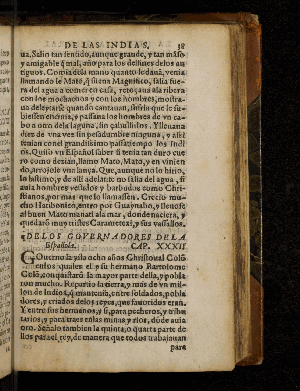 DE LAS INDIAS. 38
ua. Salin tan sentido, aunque grande, y tan manso
y amigable q̃ mal, año para los delfines de los an
tiguos. Comia de la mano quanto le daua, venia
llamando le Mato, q̃ suena Magnifico, salia fue
ra del agua a comer en casa, retoçaua a la ribera
con los mochachos y con los hombres, mostra-
ua deleytarse quando cantauan, sufria que le su-
biessen encima, y passaua los hombres de vn ca-
bo a otro dela laguna, sin çabullirlos. Y lleuaua
diez de vna vez sin pesadumbre ninguna, y assi
tenian con el grandissimo passatiempo los Indi-
os. Quiso vn Español saber si tenia tan duro cue
ro como dezian, llamo Mato, Mato, y en vinien
do, arrojole vna lança. Que, aunque no lo hirio,
lo lastimo, y de alli adelante no salia del agua, si
auia hombres vestidos y barbudos como Chri-
stianos, por mas que lo llamassen. Crecio mu-
cho Hatibonico, entro por Guaynabo, y lleuose
al buen Mato manati ala mar, donde naciera, y
quedarō muy tristes Caramatexi, y sus vassallos.
DE LOS GOVERNADORES DE LA
Española. CAP. XXXII.
GOuerno la ysla ocho años Christoual Colō
enlos quales el y su hermano Bartolome
Colō, conquistarō la mayor parte della, y pobla-
ron mucho. Repartio la tierra, y más de vn mi-
llon de Indios, q̃ mantenia, entre soldados, pobla
dores, y criados delos reyes, que fauoridos eran.
Y entre sus hermanos, y si, para pecheros, y tribu
tarios, y para traer enlas minas y rios, donde auia
oro. Señalo tambien la quinta, o quarta parte de
llos para el rey, de manera que todos trabajauan
para